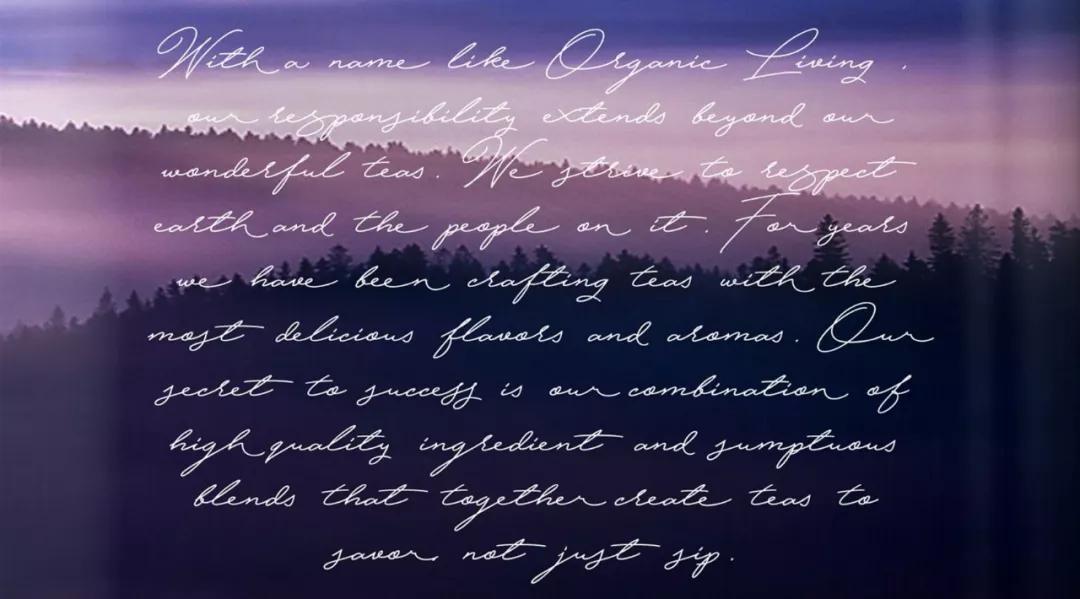 With a name like Organic Living ,
our responsibility extends beyond our
wonderful teas. We strive to respect
earth and the people on it. For years
we have been crafting teas with the
most delicious flavors and aromas. Our
secret to success is our combination of
high quality ingredient and sumptuous
blends that together create teas to
savor, not just sip.